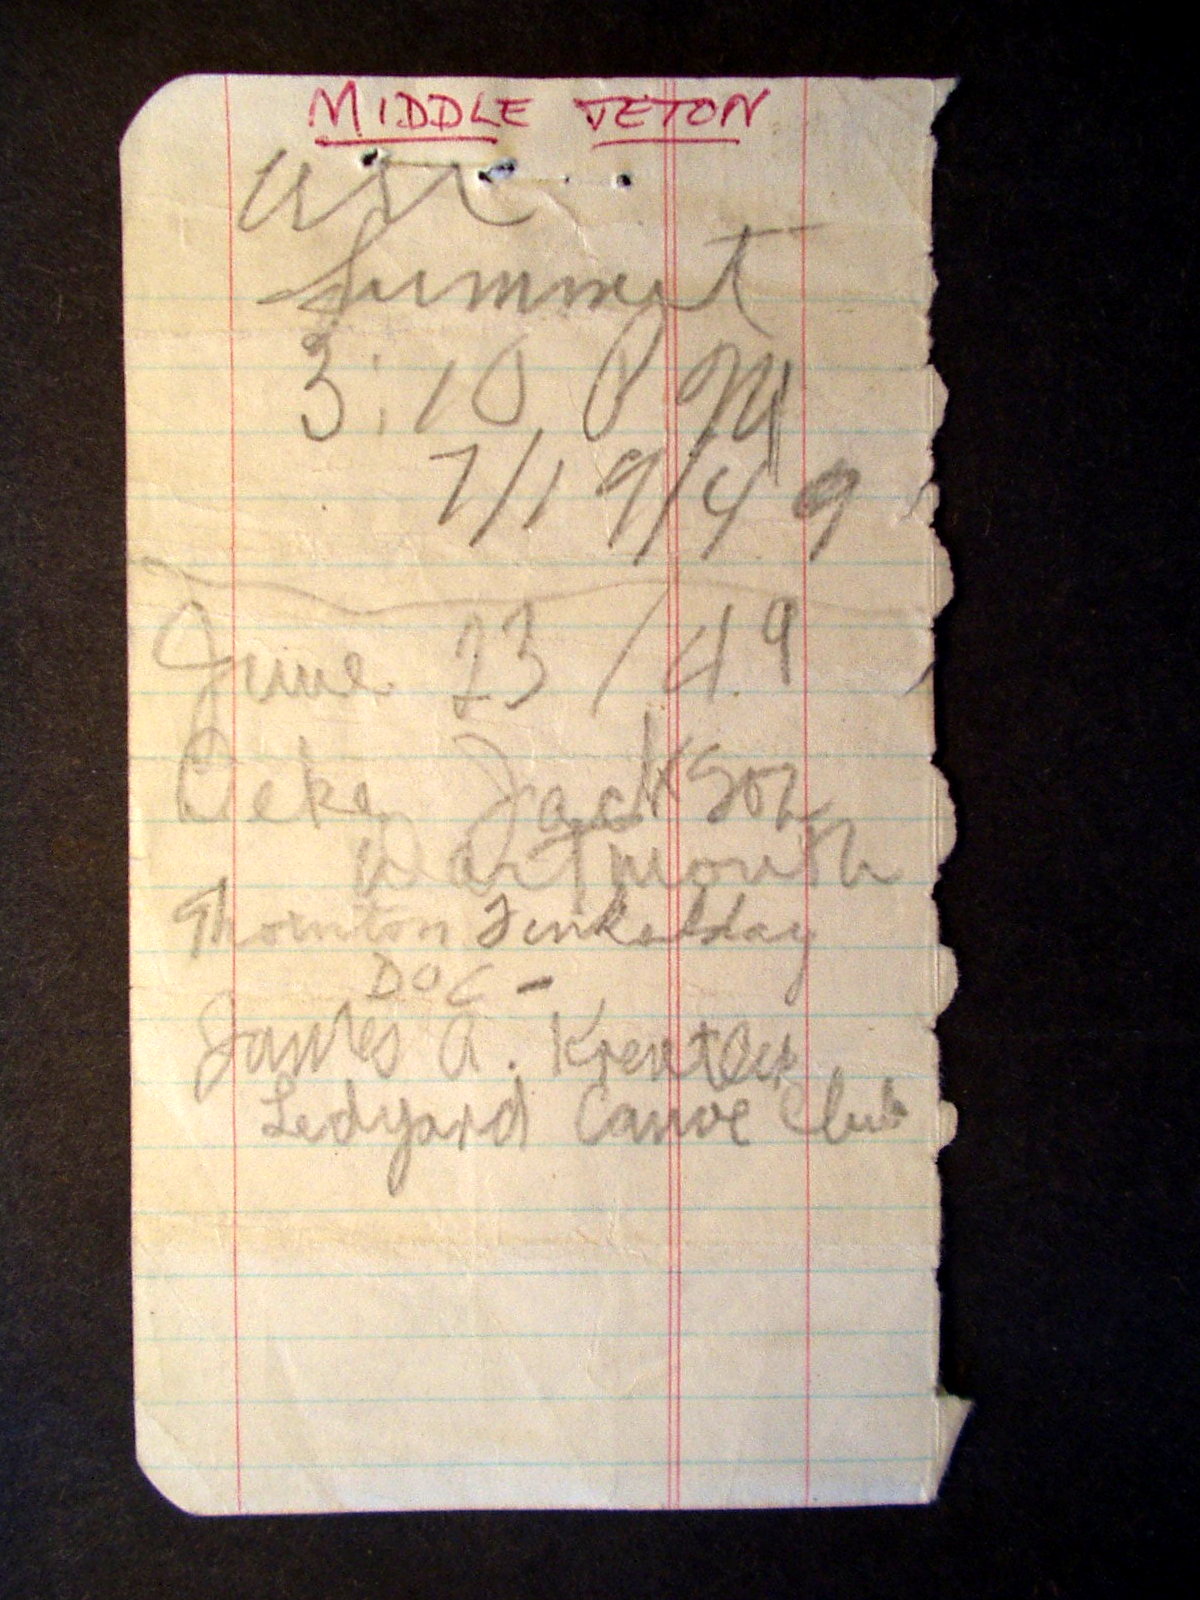 MIDDLE TETON
Summit
3:10 PM
7/19/49
June 23/49
Deke Jackson
Dartmouth
Thornton
DOC -
James A.
Ledyard Canoe Club